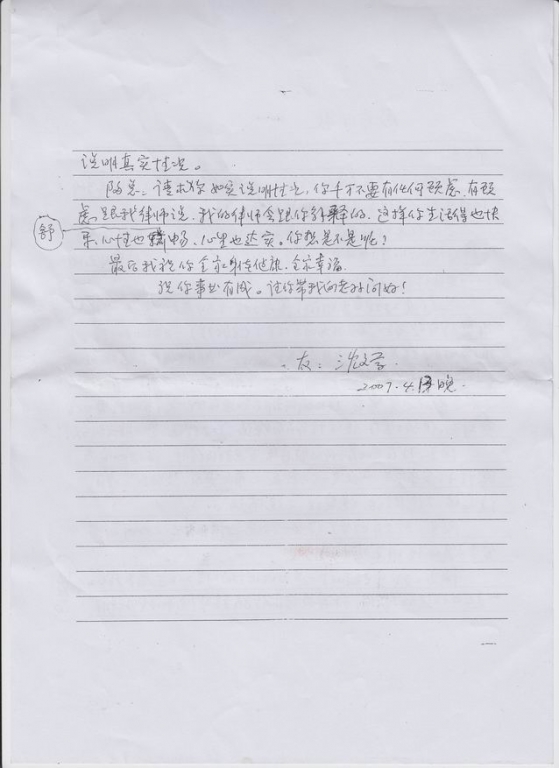 说明真实情况。
陶总：请求你如实说明情况，你千万不要有任何顾虑，有顾
虑跟我律师说，我的律师会跟你解释的，这样你生活信也快
舒
乐，心情也畅，心里也达实。你想是不是呢？
最后我祝你全家身体健康，全家幸福
祝你事业有成。请你带我向老好问好！
友：沈文
2007.4.13晚.